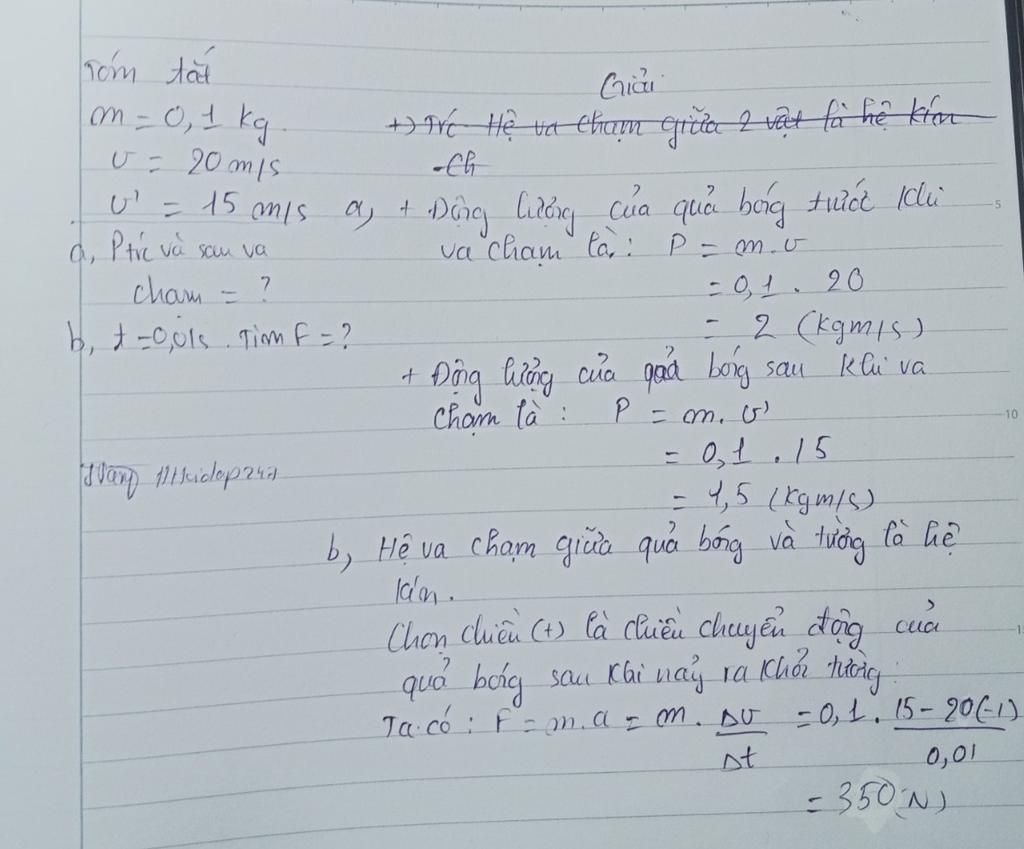 Tóm tắt
Giải
m = 0,1 kg.
+) Trc Hệ va chạm giữa 2 vật là hệ kín
v = 20 m/s
- Ch
v' = 15 m/s
a, + Động lượng của quả bóng trước khi
a, Ptrc và sau va
va chạm là: P = m.v
chạm = ?
= 0,1 . 20
b, t = 0,01s. Tìm F = ?
= 2 (kgm/s)
+ Động lượng của quả bóng sau khi va
chạm là : P = m. v'
= 0,1 . 15
= 1,5 (kgm/s)
b, Hệ va chạm giữa quả bóng và tường là hệ
kín.
Chọn chiều (+) là chiều chuyển động của
quả bóng sau khi nảy ra khỏi tường.
Ta có : F = m.a = m. Δv/Δt = 0,1 . 15 - 20(-1)/0,01
= 350 (N)
5
10